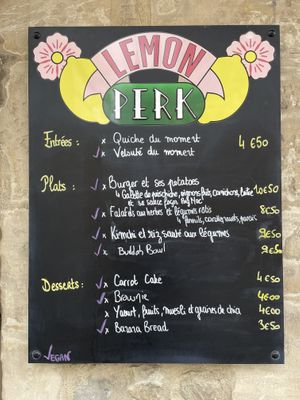 LEMON
PERK
Entrées :
x Quiche du moment 4€50
✓x Velouté du moment
Plats :
✓x Burger et ses potatoes
4 Galette de pois chiche, oignons frits, cornichons, 10€50
et sa sauce façon Big Mac
✓x Falafels aux herbes et légumes rotis 8€50
✓x Kimchi et riz sauté aux légumes 9€50
✓x Buddah Bowl 9€50
Desserts :
✓x Carrot Cake 4€50
✓x Brownie 4€00
x Yaourt, fruits, muesli et graines de chia 4€00
✓x Banana Bread 3€50
✓EGAN